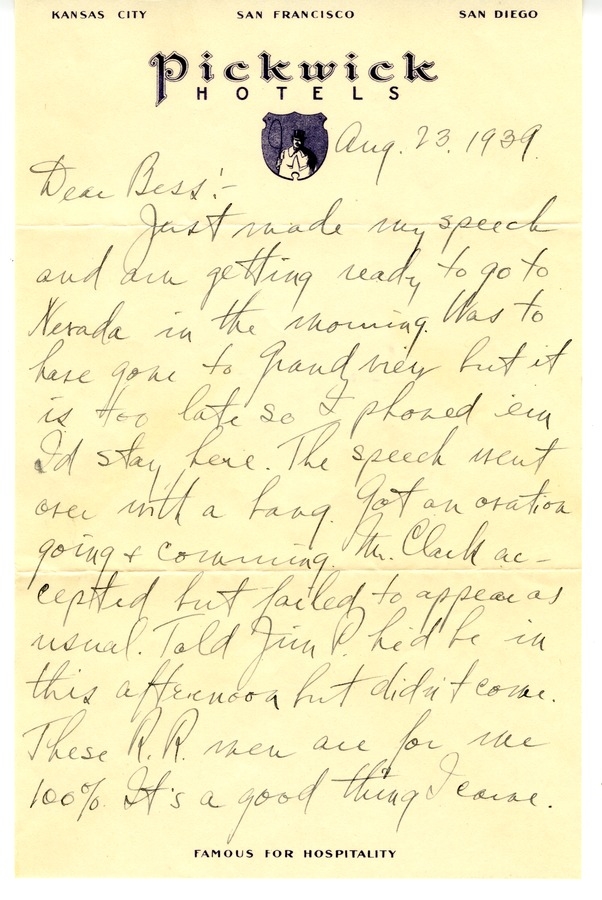 KANSAS CITY SAN FRANCISCO SAN DIEGO
Pickwick
HOTELS
Aug. 23, 1939.
Dear Bess:-
Just made my speech
and am getting ready to go to
Nevada in the morning. Was to
have gone to Grandview but it
is too late so I phoned 'em
I'd stay here. The speech went
over with a bang. Got an ovation
going & comming. Mr. Clark ac-
cepted but failed to appear as
usual. Told Jim P. he'd be in
this afternoon but didn't come.
These R.R. men are for me
100%. It's a good thing I came.
FAMOUS FOR HOSPITALITY